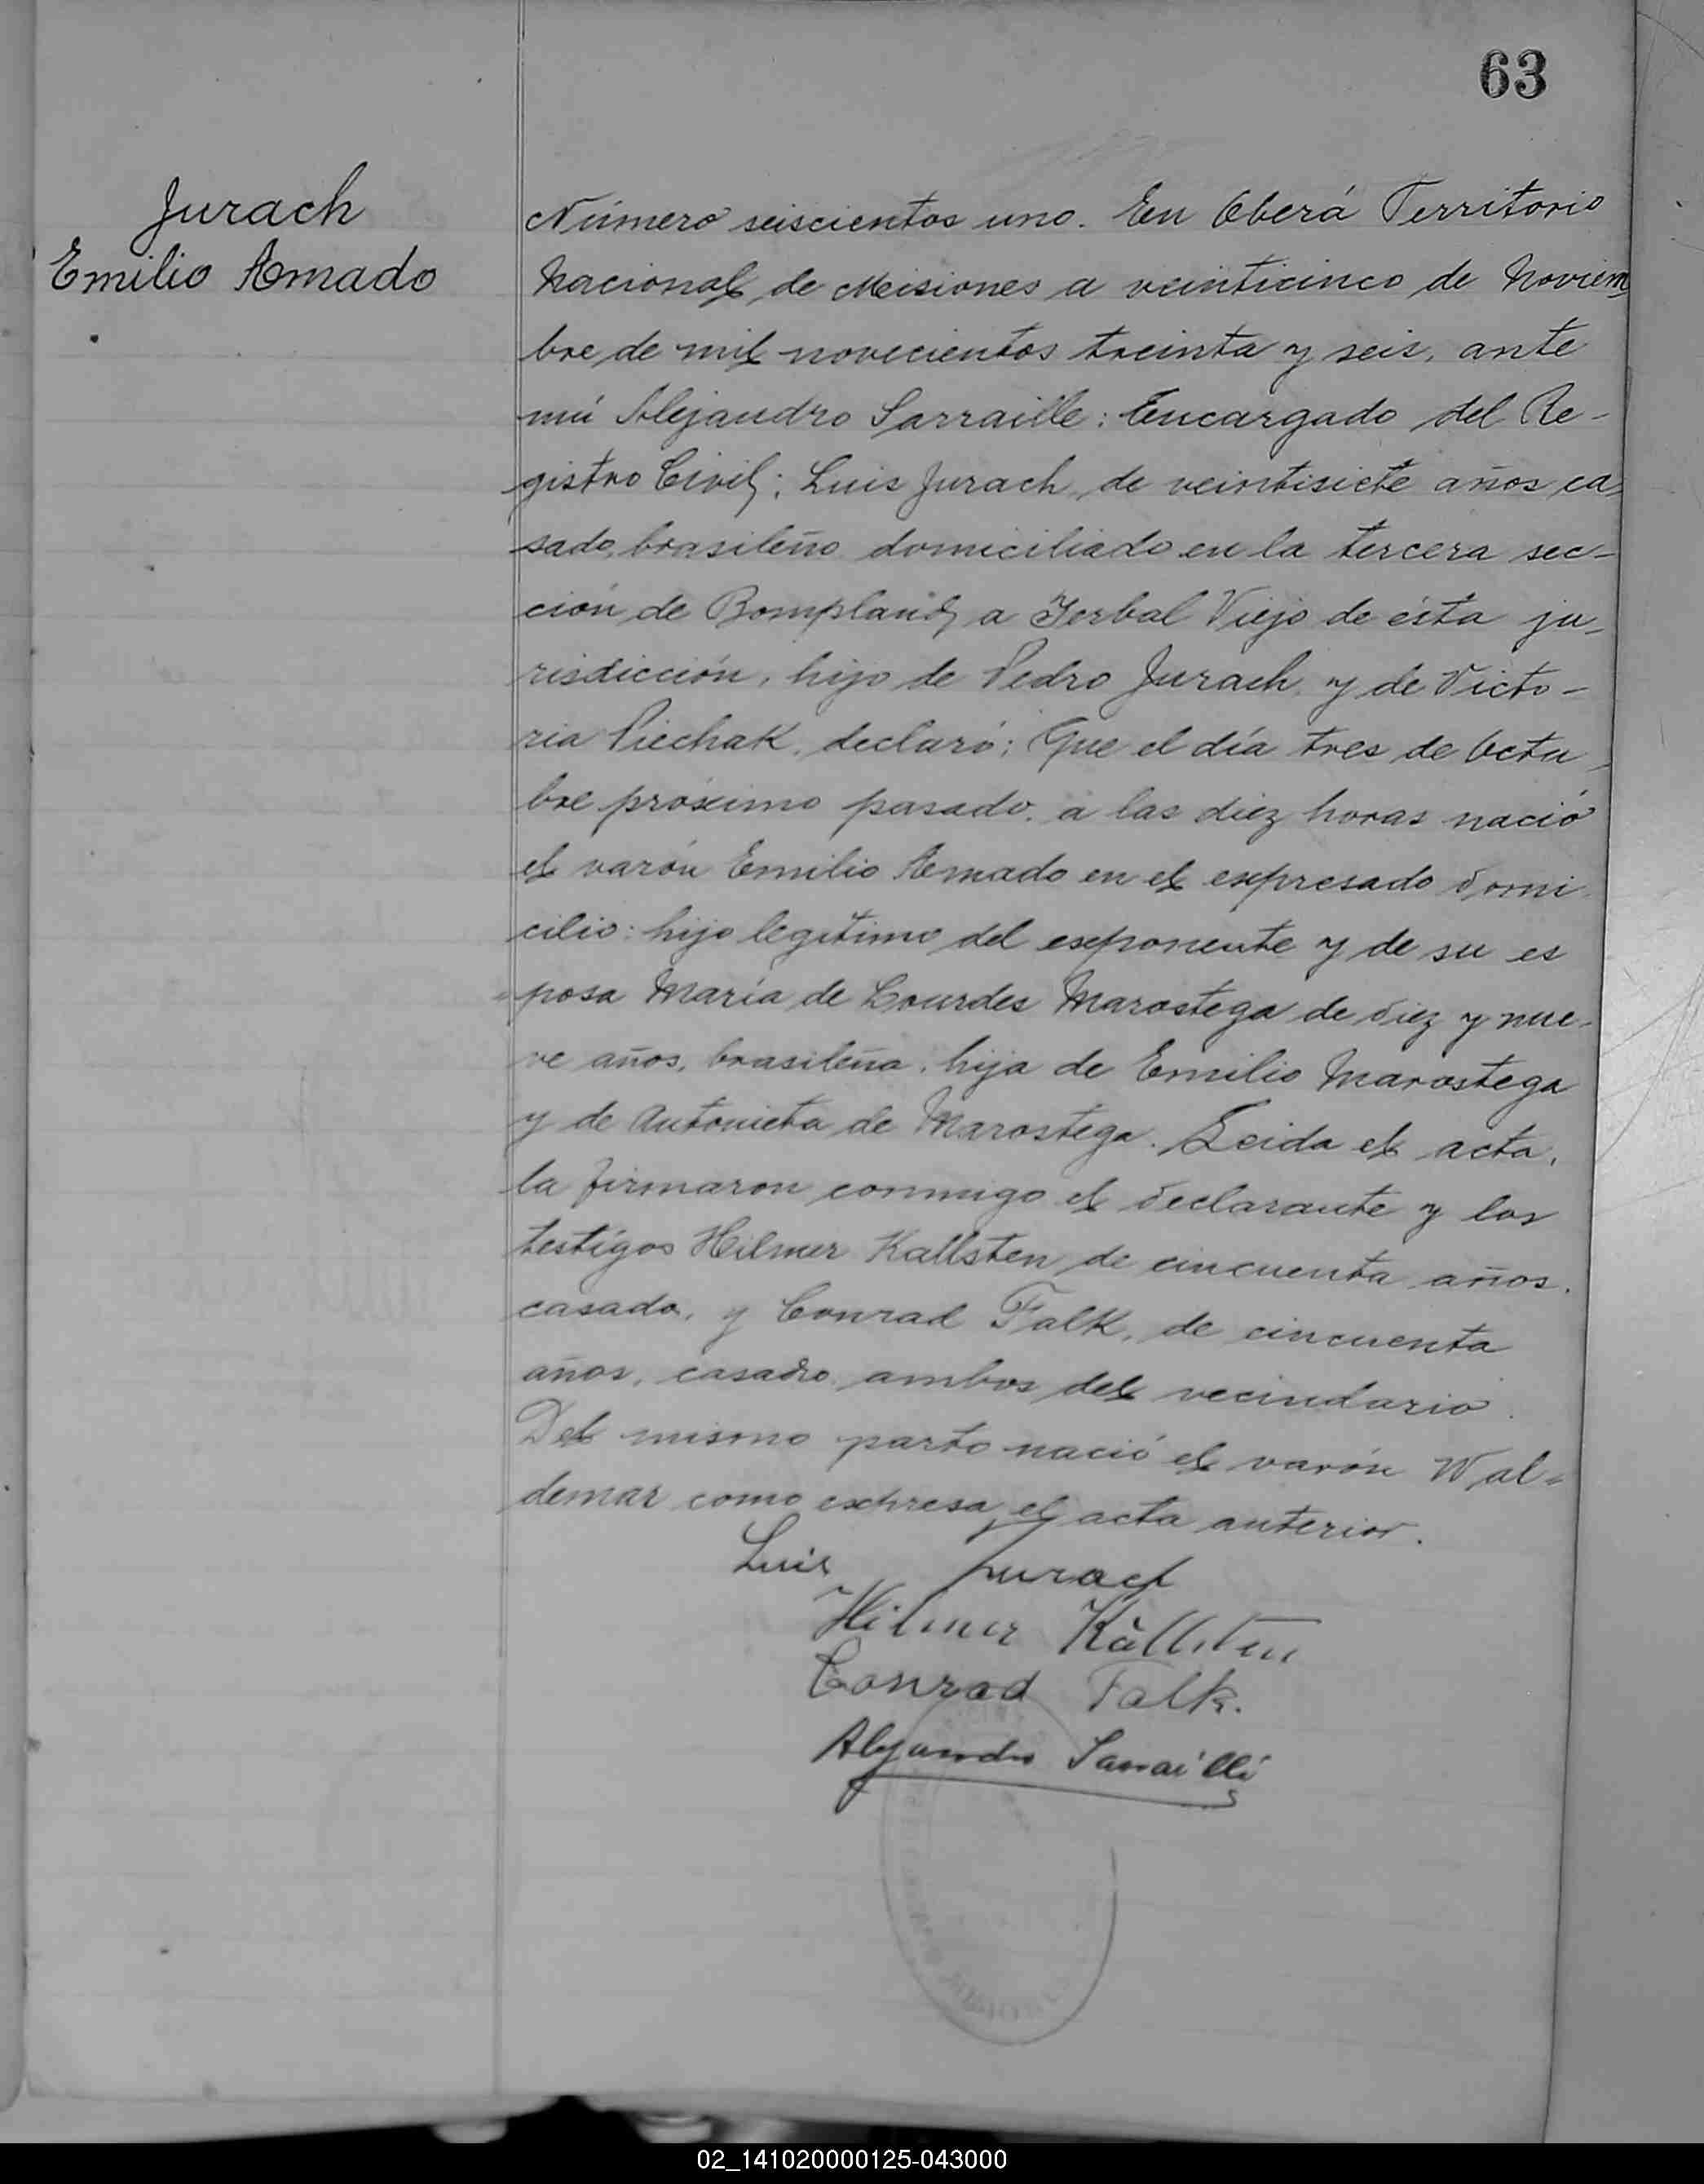 63
Jurach
Emilio Amado
Número seiscientos uno. En Oberá Territorio
Nacional de Misiones a veinticinco de Noviem
bre de mil novecientos treinta y seis, ante
mi Alejandro Sarraille: Encargado del Re-
gistro Civil; Luis Jurach, de veintisiete años ca
sado, brasileño domiciliado en la tercera sec-
ción de Bompland, a Yerbal Viejo de ésta ju-
risdicción, hijo de Pedro Jurach y de Victo-
ria Piechak, declaró; Que el día tres de Octu
bre próximo pasado, a las diez horas nació
el varón Emilio Amado en el expresado domi
cilio: hijo legítimo del exponente y de su es
posa María de Lourdes Marostega de diez y nue-
ve años, brasileña, hija de Emilio Marostega
y de Antonieta de Marostega. Leida el acta,
la firmaron conmigo el declarante y los
testigos Hilmer Kallsten de cincuenta años,
casado, y Conrad Falk, de cincuenta
años, casado, ambos del vecindario.
Del mismo parto nació el varón Wal=
demar como expresa el acta anterior.
Luis Jurach
Hilmer Källsten
Conrad Falk.
Alejandro Sarraille
02_141020000125-043000